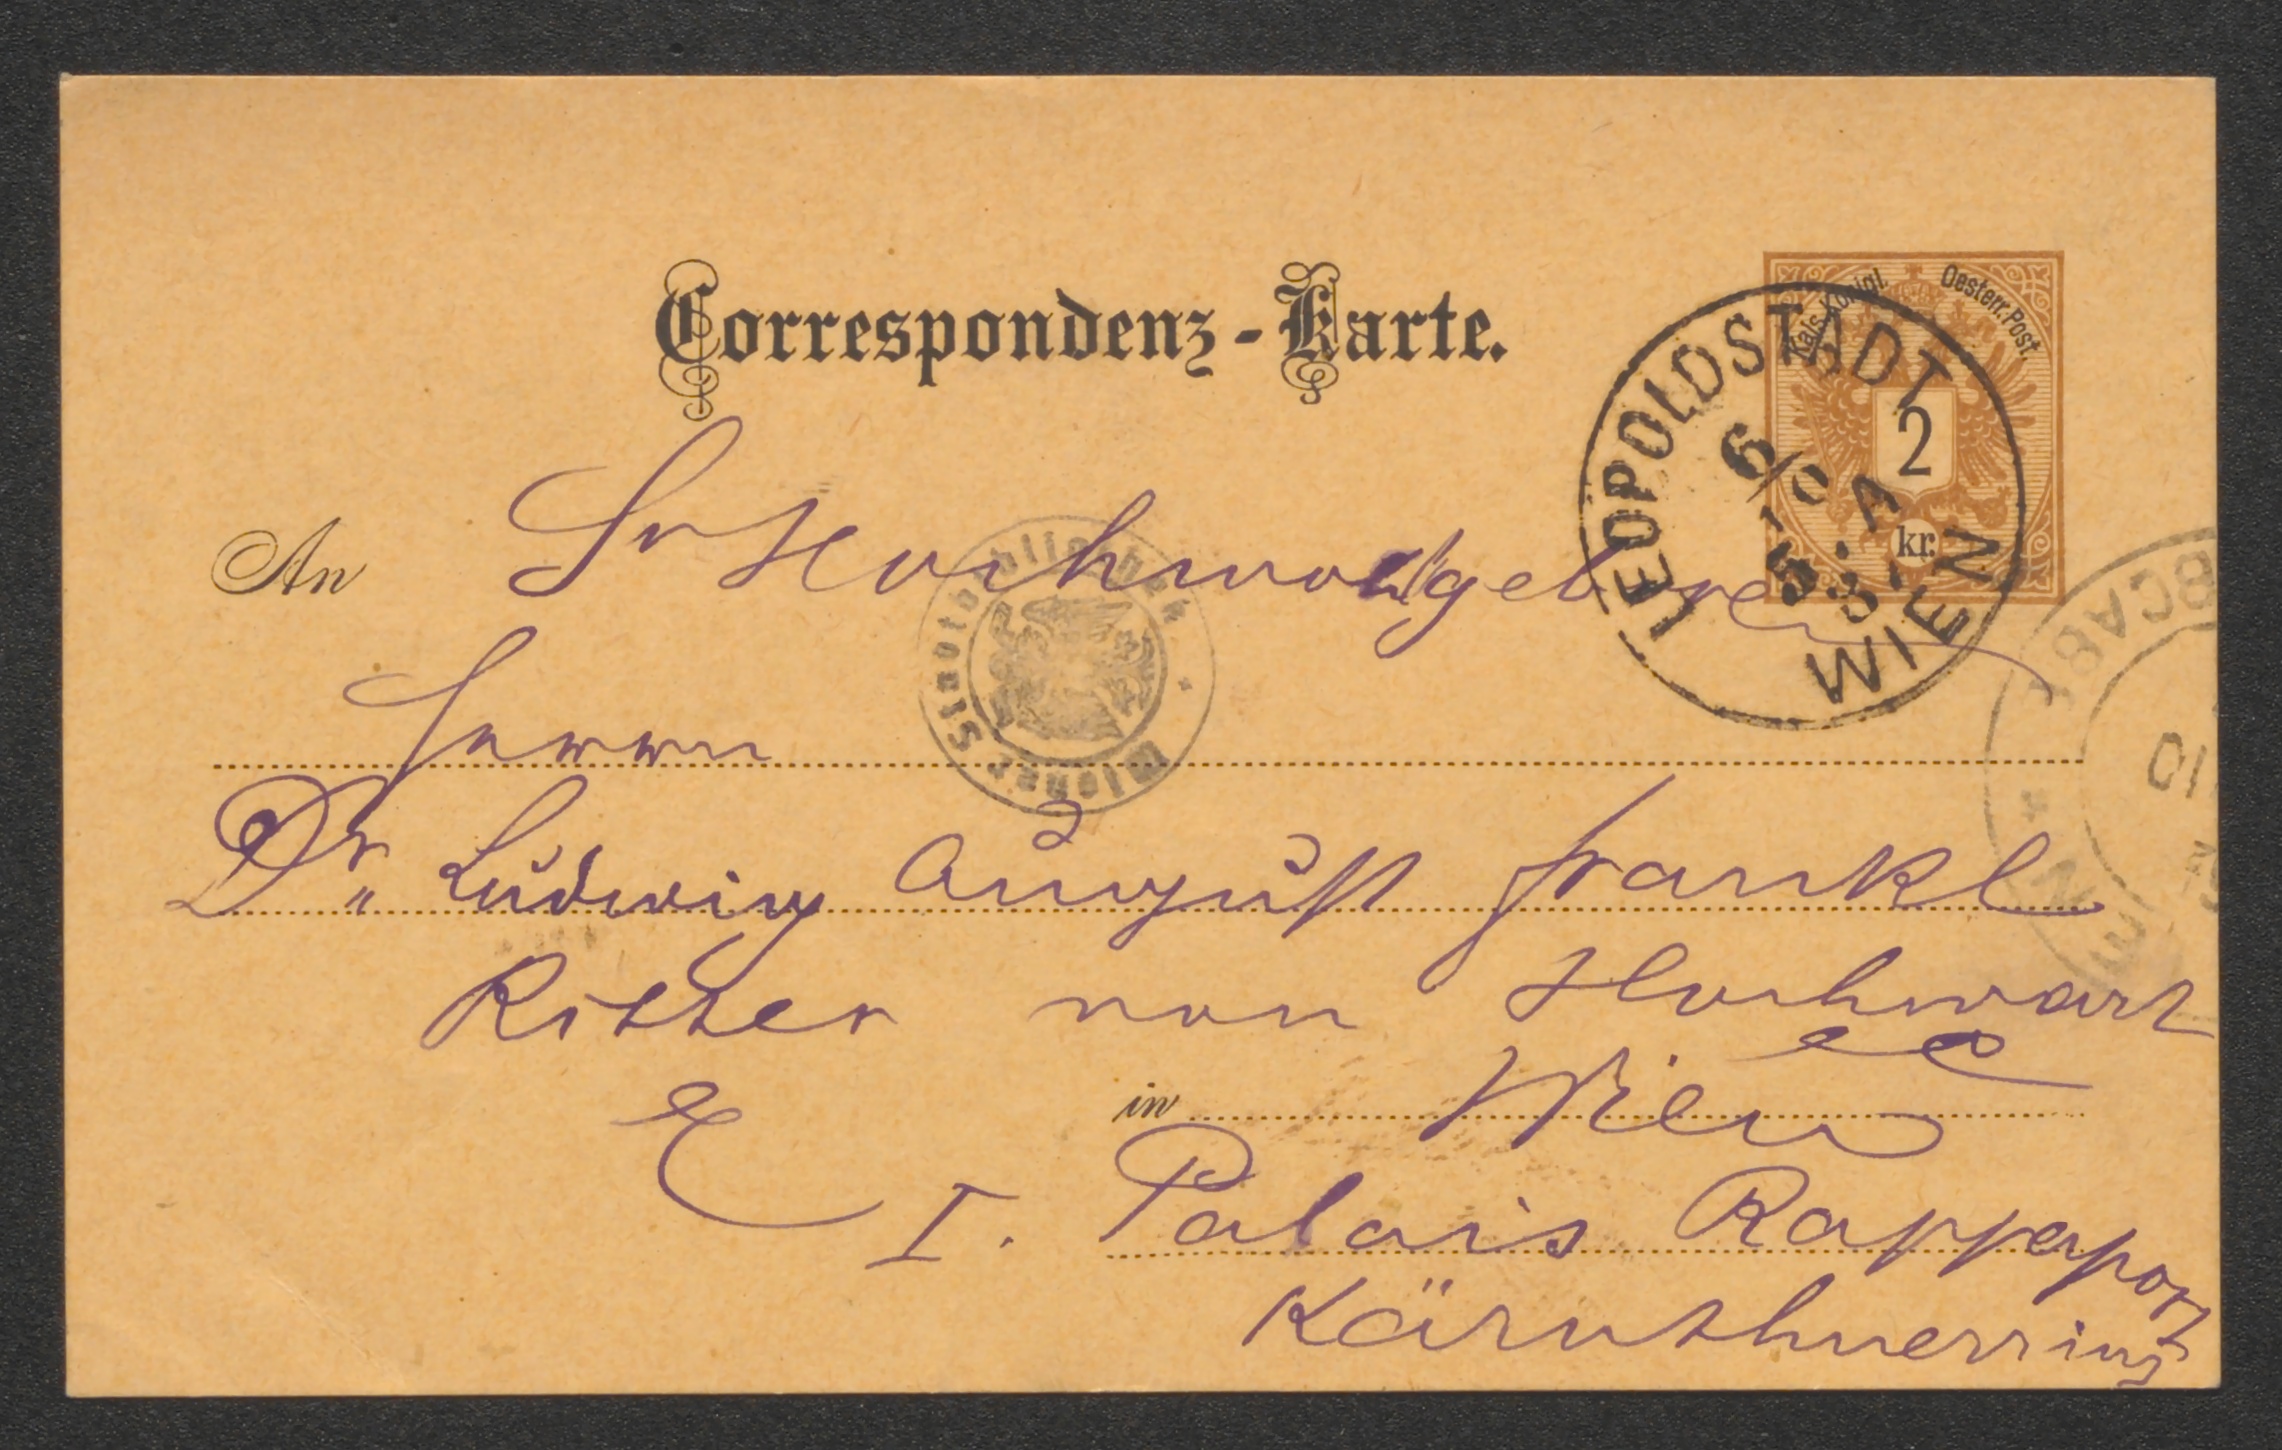 Correspondenz-Karte.
Kais. Königl. Oesterr. Post.
2
kr.
LEOPOLDSTADT
WIEN
An Sr Hochwohlgeboren
Wiener Stadtbibliothek
Herrn
Dr. Ludwig August Frankl
Ritter von Hochwart
in Wien
I. Palais Rappaport
Kärnthnerring